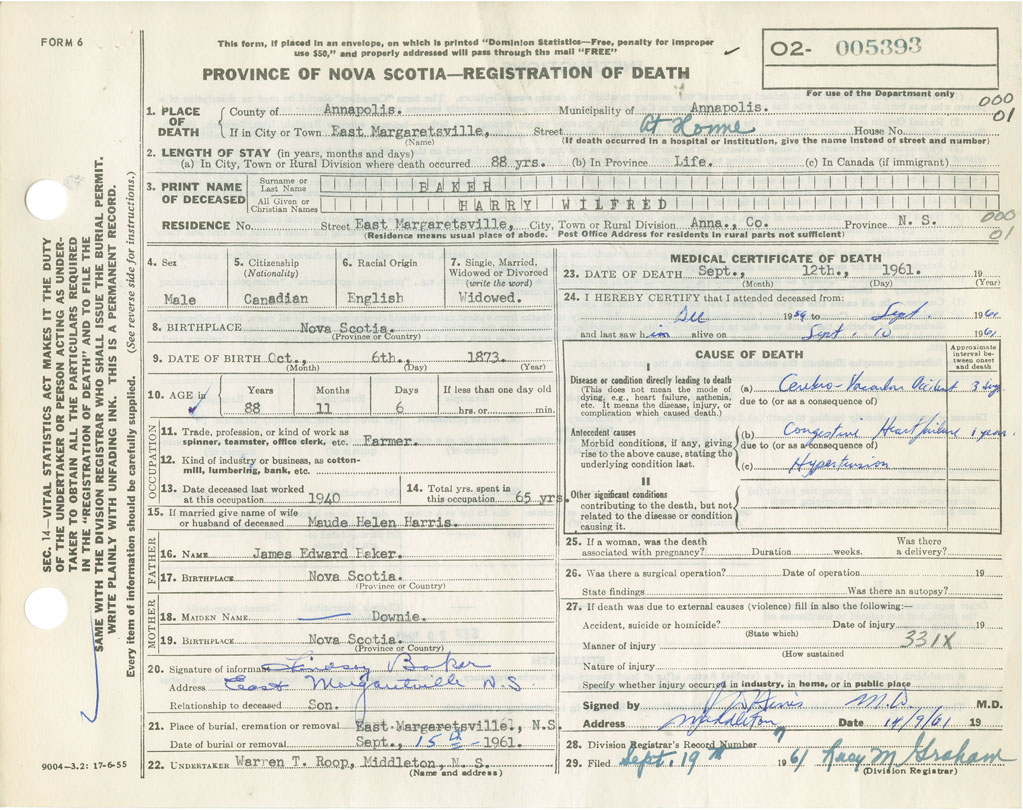 FORM 6
This form, if placed in an envelope, on which is printed "Dominion Statistics—Free, penalty for improper
use $50," and properly addressed will pass through the mail "FREE"
02- 005393
For use of the Department only
PROVINCE OF NOVA SCOTIA—REGISTRATION OF DEATH
000
01
1. PLACE OF DEATH County of Annapolis. Municipality of Annapolis.
If in City or Town East Margaretsville, Street At Home House No.
(Name) (If death occurred in a hospital or institution, give the name instead of street and number)
2. LENGTH OF STAY (in years, months and days)
(a) In City, Town or Rural Division where death occurred 88 yrs. (b) In Province Life. (c) In Canada (if immigrant)
3. PRINT NAME OF DECEASED Surname or Last Name BAKER
All Given or Christian Names HARRY WILFRED
RESIDENCE No. Street East Margaretsville, City, Town or Rural Division Anna., Co. Province N. S.
(Residence means usual place of abode. Post Office Address for residents in rural parts not sufficient)
000
01
4. Sex Male
5. Citizenship (Nationality) Canadian
6. Racial Origin English
7. Single, Married, Widowed or Divorced (write the word) Widowed.
8. BIRTHPLACE Nova Scotia.
(Province or Country)
9. DATE OF BIRTH Oct., 6th., 1873.
(Month) (Day) (Year)
10. AGE in Years Months Days If less than one day old
88 11 6 hrs. or min.
OCCUPATION
11. Trade, profession, or kind of work as
spinner, teamster, office clerk, etc. Farmer.
12. Kind of industry or business, as cotton-
mill, lumbering, bank, etc.
13. Date deceased last worked
at this occupation 1940
14. Total yrs. spent in
this occupation 65 yrs.
15. If married give name of wife
or husband of deceased Maude Helen Harris.
FATHER
16. NAME James Edward Baker.
17. BIRTHPLACE Nova Scotia.
(Province or Country)
MOTHER
18. MAIDEN NAME — Downie.
19. BIRTHPLACE Nova Scotia.
(Province or Country)
20. Signature of informant Lindsey Baker
Address East Margaretville N.S.
Relationship to deceased Son.
21. Place of burial, cremation or removal East Margaretsville, N.S.
Date of burial or removal Sept., 15th 1961.
22. UNDERTAKER Warren T. Roop, Middleton, N. S.
(Name and address)
MEDICAL CERTIFICATE OF DEATH
23. DATE OF DEATH Sept., 12th., 1961. 19
(Month) (Day) (Year)
24. I HEREBY CERTIFY that I attended deceased from:
Dec 1959 to Sept. 1961
and last saw him alive on Sept. 10 1961
CAUSE OF DEATH
Approximate interval between onset and death
I
Disease or condition directly leading to death
(This does not mean the mode of
dying, e.g., heart failure, asthenia,
etc. It means the disease, injury, or
complication which caused death.)
(a) Cerebro-Vascular Accident 3 days
due to (or as a consequence of)
Antecedent causes
Morbid conditions, if any, giving
rise to the above cause, stating the
underlying condition last.
(b) Congestive Heart failure 1 year
due to (or as a consequence of)
(c) Hypertension
II
Other significant conditions
contributing to the death, but not
related to the disease or condition
causing it.
25. If a woman, was the death Was there
associated with pregnancy? Duration weeks. a delivery?
26. Was there a surgical operation? Date of operation 19
State findings Was there an autopsy?
27. If death was due to external causes (violence) fill in also the following:—
Accident, suicide or homicide? Date of injury 19
(State which)
Manner of injury 331X
(How sustained
Nature of injury
Specify whether injury occurred in industry, in home, or in public place
Signed by M.D. M.D.
Address Middleton Date 14/9/61 19
28. Division Registrar's Record Number 7
29. Filed Sept. 19th 1961 M Graham
(Division Registrar)
SEC. 14—VITAL STATISTICS ACT MAKES IT THE DUTY
OF THE UNDERTAKER OR PERSON ACTING AS UNDER-
TAKER TO OBTAIN ALL THE PARTICULARS REQUIRED
IN THE "REGISTRATION OF DEATH" AND TO FILE THE
SAME WITH THE DIVISION REGISTRAR WHO SHALL ISSUE THE BURIAL PERMIT.
WRITE PLAINLY WITH UNFADING INK. THIS IS A PERMANENT RECORD.
Every item of information should be carefully supplied. (See reverse side for instructions.)
9004-3.2: 17-6-55